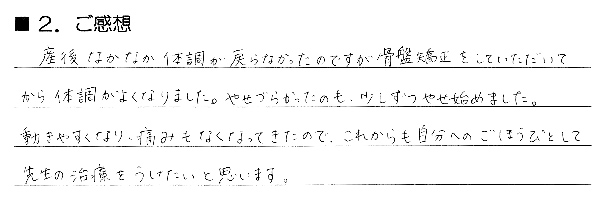 ■ 2. ご感想
産後なかなか体調が戻らなかったのですが骨盤矯正をしていただいて
から体調がよくなりました。やせづらかったのも、少しずつやせ始めました。
動きやすくなり、痛みもなくなってきたので、これからも自分へのごほうびとして
先生の治療をうけたいと思います。